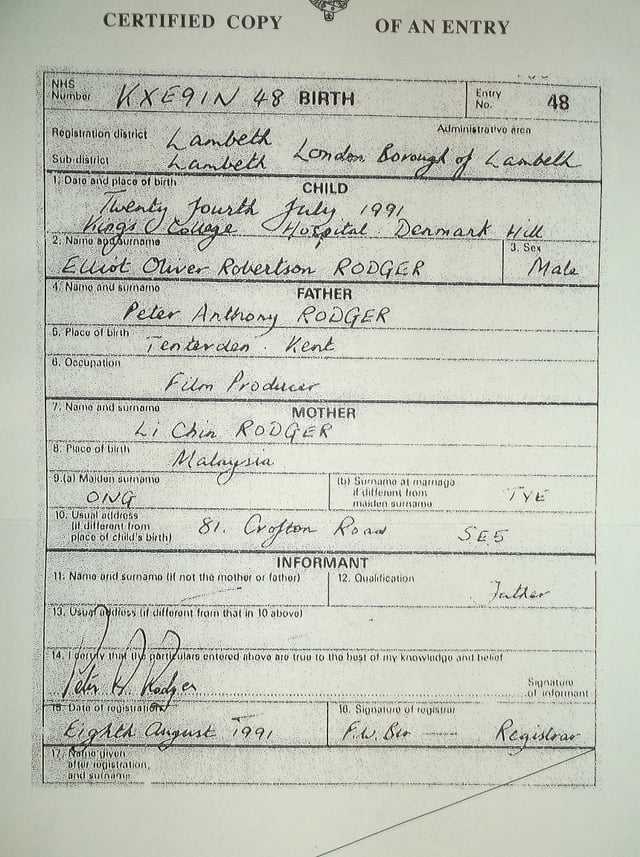 CERTIFIED COPY OF AN ENTRY
NHS Number KXE91N 48 BIRTH Entry No. 48
Registration district Lambeth Administrative area
Sub-district Lambeth London Borough of Lambeth
1. Date and place of birth CHILD
Twenty fourth July 1991
Kings College Hospital. Denmark Hill
2. Name and surname 3. Sex
Elliot Oliver Robertson RODGER Male
4. Name and surname FATHER
Peter Anthony RODGER
5. Place of birth Tenterden. Kent
6. Occupation
Film Producer
7. Name and surname MOTHER
Li Chin RODGER
8. Place of birth Malaysia
9.(a) Maiden surname (b) Surname at marriage if different from maiden surname
ONG TYE
10. Usual address (if different from place of child's birth) 81. Crofton Road SE5
INFORMANT
11. Name and surname (if not the mother or father) 12. Qualification
Father
13. Usual address (if different from that in 10 above)
14. I certify that the particulars entered above are true to the best of my knowledge and belief
Peter A. Rodger Signature of informant
15. Date of registration 16. Signature of registrar
Eighth August 1991 F.W. Registrar
17. Name given after registration, and surname